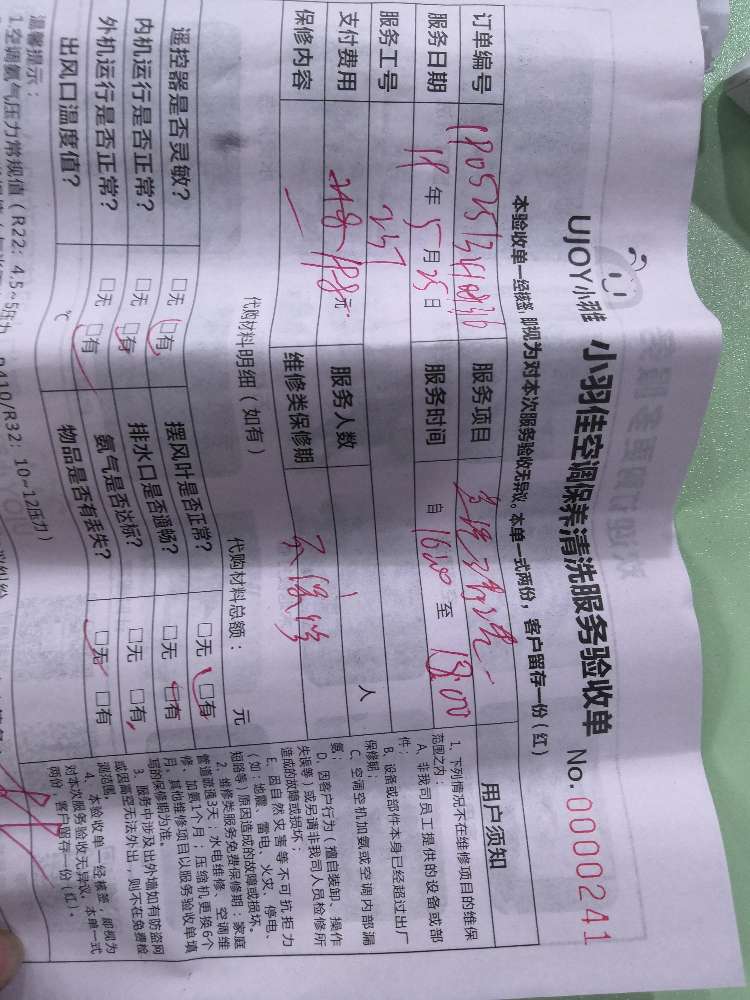 UJOY小羽佳 小羽佳空调保养清洗服务验收单 No.0000241
本验收单一经核签,即视为对本次服务验收无异议。本单一式两份,客户留存一份(红)
订单编号 服务项目
服务日期 18年5月25日 服务时间 自 至 18:00
服务工号 237
支付费用 元 服务人数 1 人
保修内容 — 维修类保修期
代购材料明细(如有) 代购材料总额: 元
遥控器是否灵敏? □无 □有 摆风叶是否正常? □无 □有
内机运行是否正常? □无 □有 排水口是否通畅? □无 □有
外机运行是否正常? □无 □有 氨气是否达标? □无 □有
出风口温度值? ℃ 物品是否有丢失? □无 □有
温馨提示:
1.空调氨气压力常规值(R22:4.5~5压力 R410/R32:10~12压力)
用户须知
1、下列情况不在维修项目的维保
范围之内:
A、非我司员工提供的设备或部
件;
B、设备或部件本身已经超过出厂
保修期;
C、空调空机加氨或空调内部漏
氨;
D、因客户行为(擅自装卸、操作
失误等)或另请非我司人员检修所
造成的故障或损坏;
E、因自然灾害等不可抗拒力
(如:地震、雷电、火灾、停电、
短路等)原因造成的故障或损坏。
2、维修类服务免费保修期:家庭
管道疏通3天;水电维修、空调维
修、加氨1个月;压缩机更换6个
月,其他维修项目以服务验收单填
写的保修期为准。
3、服务中涉及出外墙如有防盗网
或因高空无法外出,则不在免费检
测范围。
4、本验收单一经核签,即视为
对本次服务验收无异议,本单一式
两份,客户留存一份(红)。